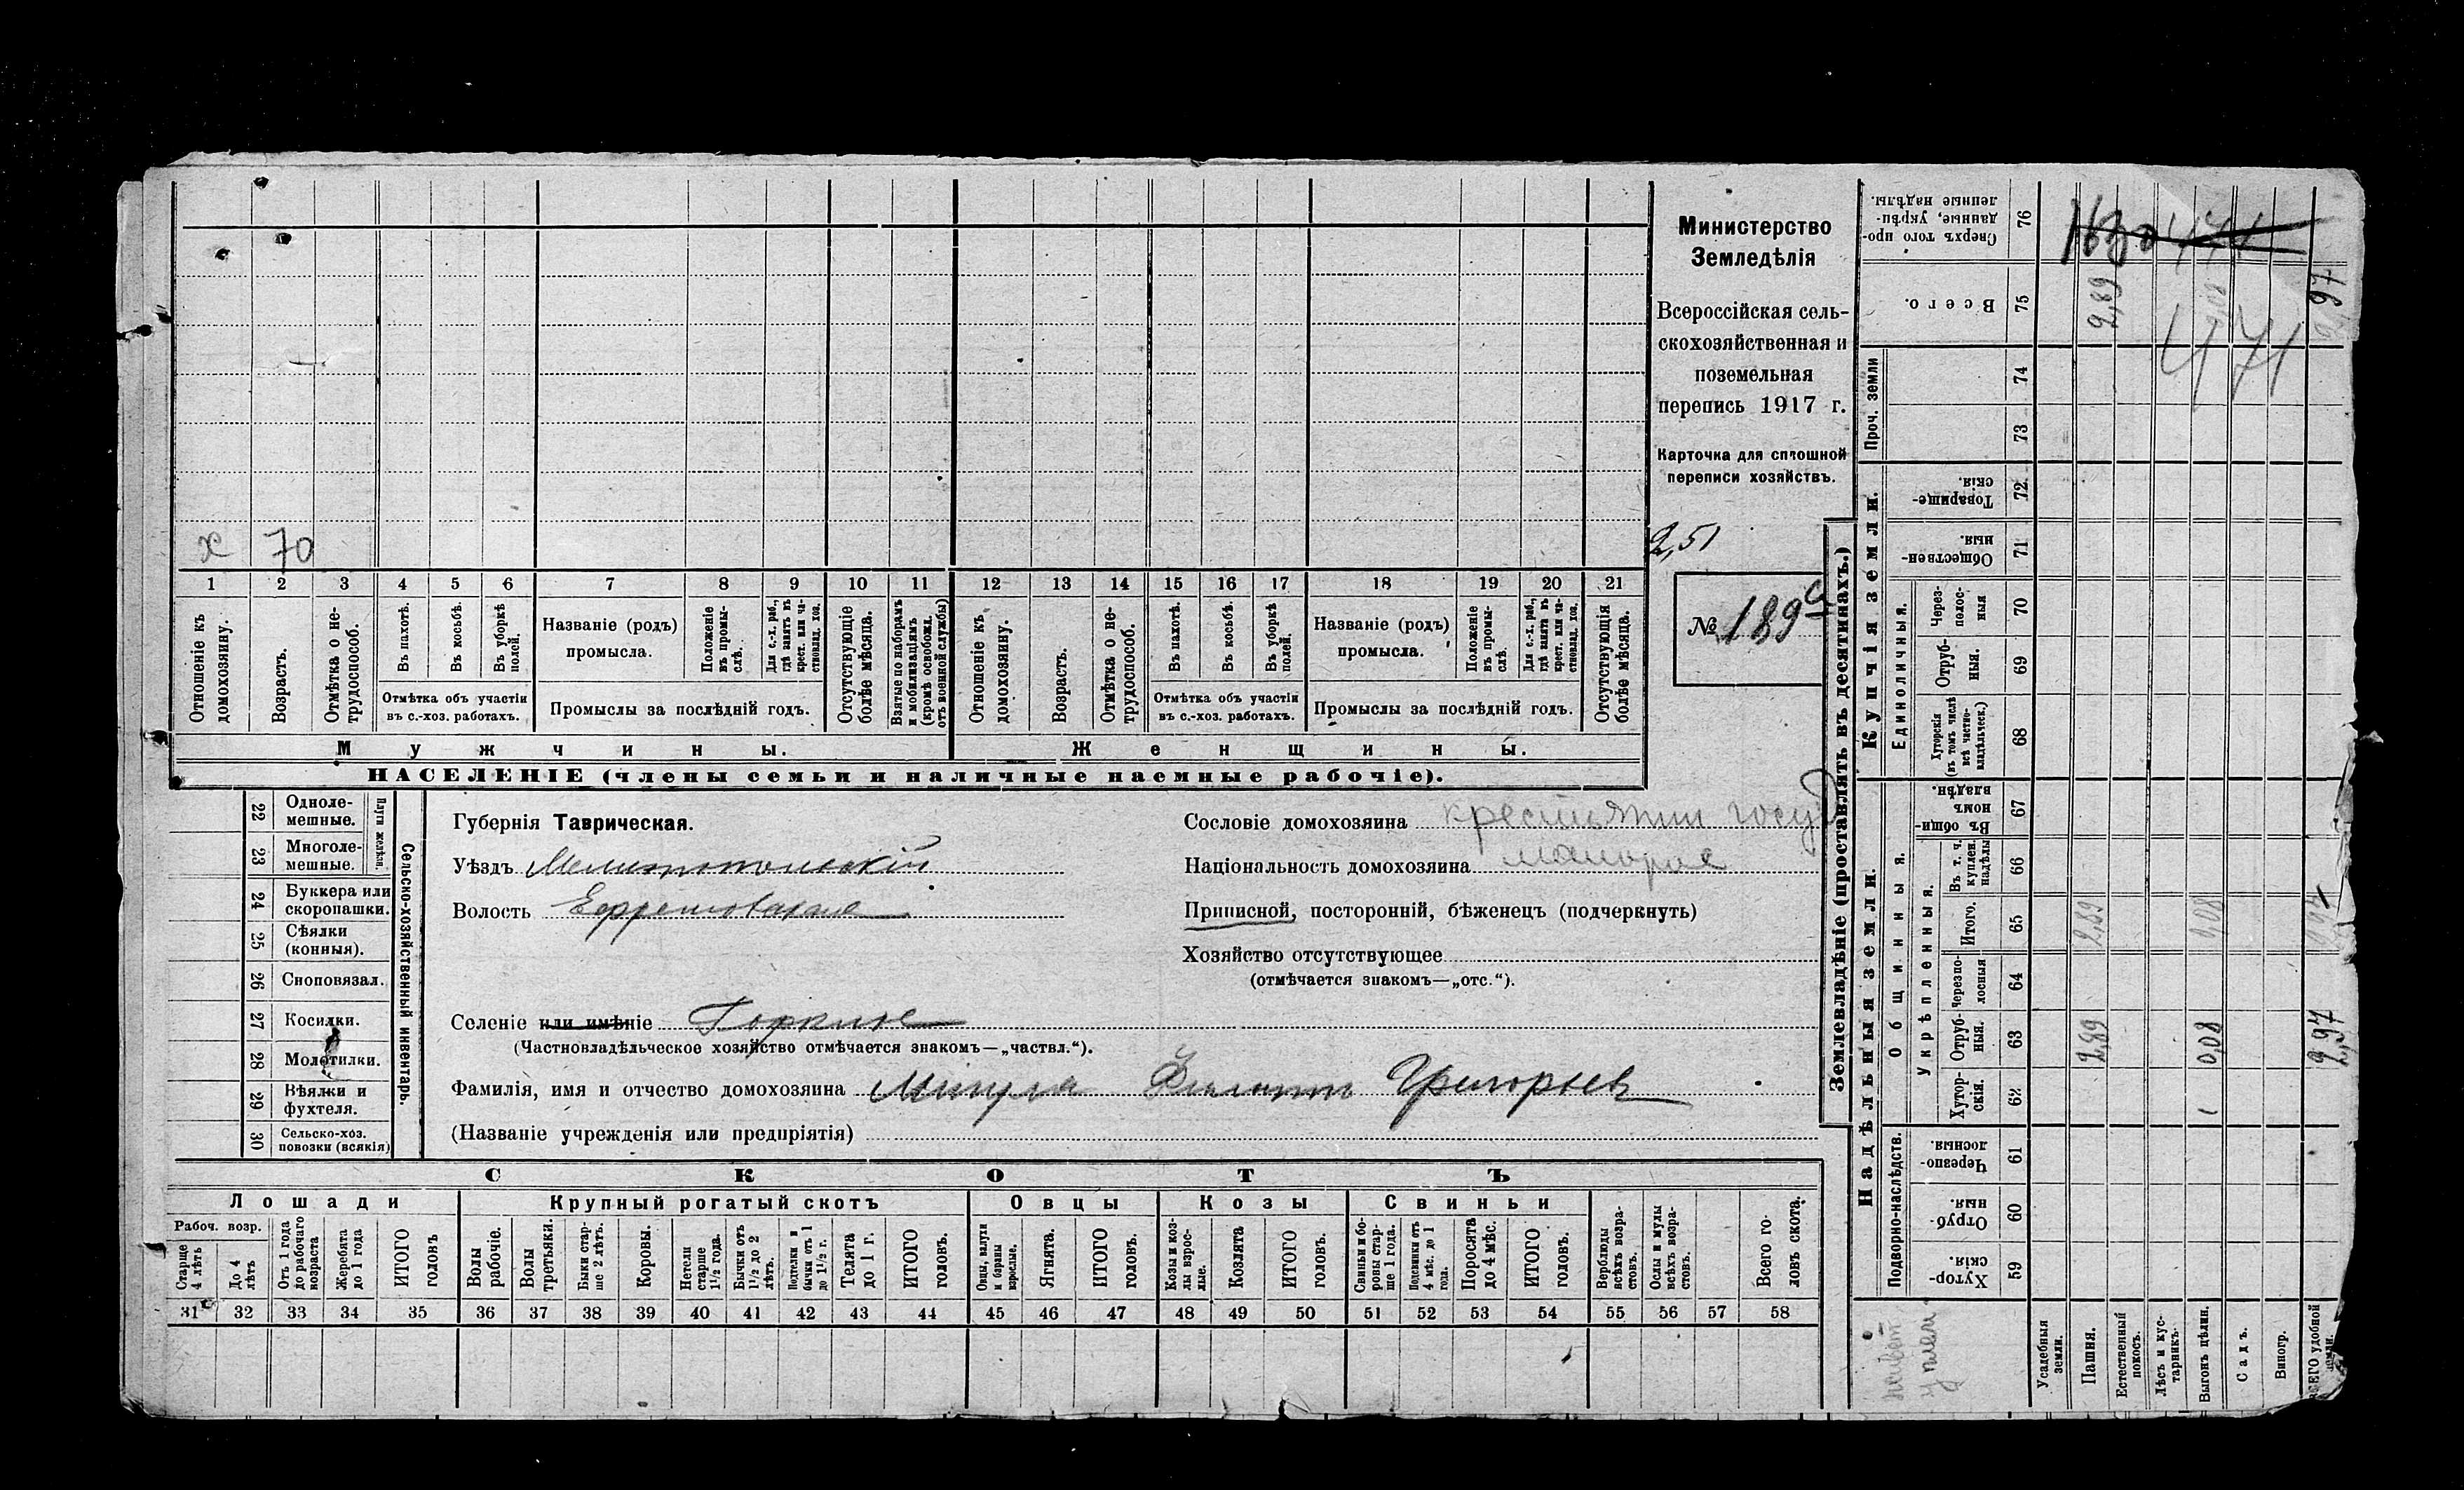 х 70
1 2 3 4 5 6 7 8 9 10 11 12 13 14 15 16 17 18 19 20 21
Отношеніе къ домохозяину.
Возрастъ.
Отмѣтка о не-
трудоспособ.
Въ пахотѣ.
Въ косьбѣ.
Въ уборкѣ полей.
Отмѣтка объ участіи
въ с.-хоз. работахъ.
Названіе (родъ)
промысла.
Положеніе въ промы-
слѣ.
Для с.-х. раб., гдѣ занятъ въ крест. или ча-
стновлад. хоз.
Промыслы за послѣдній годъ.
Отсутствующіе болѣе мѣсяца.
Взятые по наборамъ и мобилизаціямъ (кромѣ освобожд. отъ военной службы)
Отношеніе къ домохозяину.
Возрастъ.
Отмѣтка о не-
трудоспособ.
Въ пахотѣ.
Въ косьбѣ.
Въ уборкѣ полей.
Отмѣтка объ участіи
въ с.-хоз. работахъ.
Названіе (родъ)
промысла.
Положеніе въ промы-
слѣ.
Для с.-х. раб., гдѣ занята въ крест. или ча-
стновлад. хоз.
Промыслы за послѣдній годъ.
Отсутствующія болѣе мѣсяца.
Мужчины. Женщины.
НАСЕЛЕНІЕ (члены семьи и наличные наемные рабочіе).
Министерство
Земледѣлія
Всероссійская сель-
скохозяйственная и
поземельная
перепись 1917 г.
Карточка для сплошной
переписи хозяйствъ.
2,51
№ 189
22 Одноле-
мешные.
23 Многоле-
мешные.
Плуги желѣзн.
24 Буккера или
скоропашки.
25 Сѣялки
(конныя).
26 Сноповязал.
27 Косилки.
28 Молотилки.
29 Вѣялки и
фухтеля.
30 Сельско-хоз.
повозки (всякія)
Сельско-хозяйственный инвентарь.
Губернія Таврическая.
Уѣздъ Мелитопольскій
Волость Ефремовская
Селеніе или имѣніе Горькое
(Частновладѣльческое хозяйство отмѣчается знакомъ—„частвл.“).
Фамилія, имя и отчество домохозяина Григорьев
(Названіе учрежденія или предпріятія)
Сословіе домохозяина крестьянин госуд
Національность домохозяина малорос
Приписной, посторонній, бѣженецъ (подчеркнуть)
Хозяйство отсутствующее
(отмѣчается знакомъ—„отс.“).
СКОТЪ
Лошади Крупный рогатый скотъ Овцы Козы Свиньи
Рабоч. возр.
Старше 4 лѣтъ
До 4 лѣтъ
Отъ 1 года до рабочаго возраста
Жеребята до 1 года
ИТОГО головъ
Волы рабочіе.
Волы третьяки.
Быки стар-
ше 2 лѣтъ.
Коровы.
Нетели старше 1½ года.
Бычки отъ 1½ до 2 лѣтъ.
Подтелки и бычки отъ 1 до 1½ г.
Телята до 1 г.
ИТОГО головъ.
Овцы, валухи и бараны взрослые.
Ягнята.
ИТОГО головъ.
Козы и коз-
лы взрос-
лые.
Козлята
ИТОГО головъ.
Свиньи и бо-
ровы стар-
ше 1 года.
Подсвинки отъ 4 мѣс. до 1 года.
Поросята до 4 мѣс.
ИТОГО головъ.
Верблюды всѣхъ возра-
стовъ.
Ослы и мулы всѣхъ возра-
стовъ.
Всего го-
ловъ скота.
31 32 33 34 35 36 37 38 39 40 41 42 43 44 45 46 47 48 49 50 51 52 53 54 55 56 57 58
Землевладѣніе (проставлять въ десятинахъ.)
Сверхъ того про-
данные, укрѣп-
ленные надѣлы.
76
Всего.
75 2,89 0,08 2,97
471
Купчія земли.
Проч. земли
74
73
Товарище-
скія.
72
Обществен-
ныя.
71
Единоличныя.
Через-
полос-
ныя
70
Отруб-
ныя.
69
Хуторскія
(въ томъ числѣ всѣ частно-
владѣльческ.)
68
Надѣльныя земли.
Общинныя.
Въ общин-
номъ
владѣн.
67
Укрѣпленныя.
Въ т. ч. куплен. надѣлы
66
Итого.
65 2,89 0,08
Черезпо-
лосныя
64
Отруб-
ныя.
63 2,89 0,08 2,97
Хутор-
скія.
62
Подворно-наслѣдств.
Черезпо-
лосныя.
61
Отруб-
ныя.
60
Хутор-
скія.
59
Усадебныя земли.
Пашня.
Естественный покосъ.
Лѣсъ и кус-
тарникъ.
Выгонъ цѣлин.
Садъ.
Виногр.
ВСЕГО удобной земли.